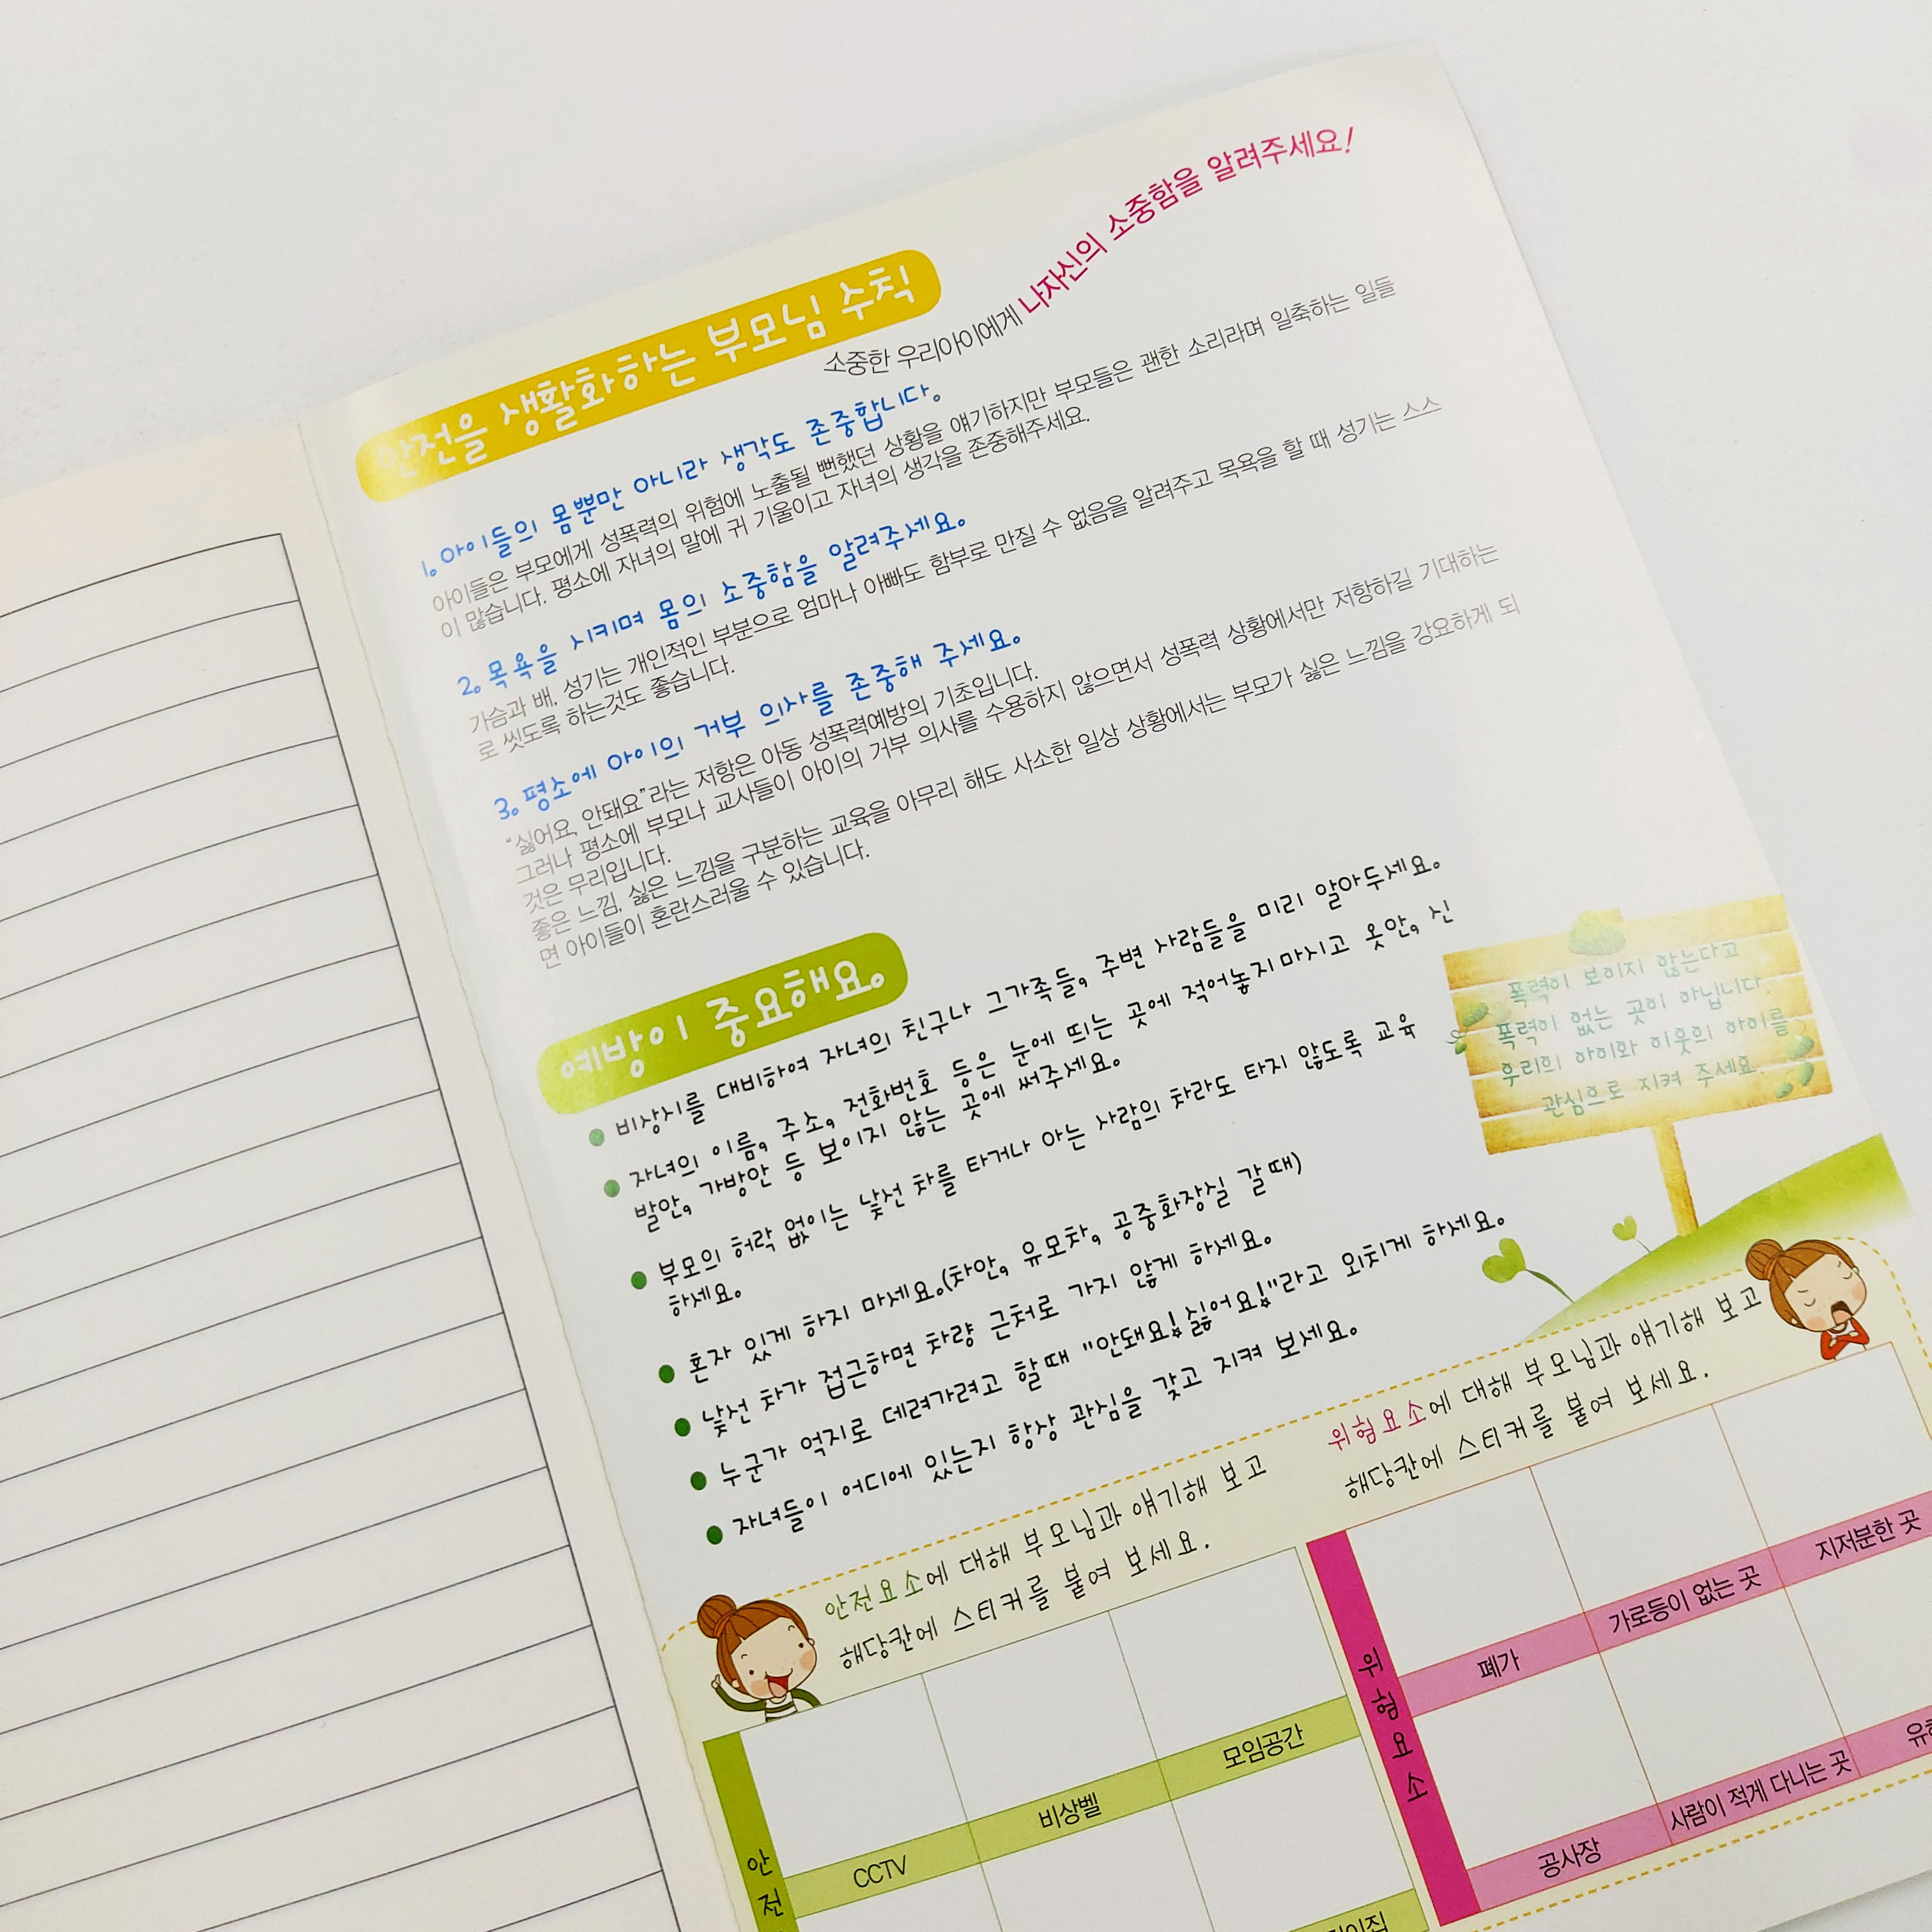 안전을 생활화하는 부모님 수칙
소중한 우리아이에게 나자신의 소중함을 알려주세요!
1. 아이들의 몸뿐만 아니라 생각도 존중합니다.
아이들은 부모에게 성폭력의 위험에 노출될 뻔했던 상황을 얘기하지만 부모들은 괜한 소리라며 일축하는 일들
이 많습니다. 평소에 자녀의 말에 귀 기울이고 자녀의 생각을 존중해주세요.
2. 목욕을 시키며 몸의 소중함을 알려주세요.
가슴과 배, 성기는 개인적인 부분으로 엄마나 아빠도 함부로 만질 수 없음을 알려주고 목욕을 할 때 성기는 스스
로 씻도록 하는것도 좋습니다.
3. 평소에 아이의 거부 의사를 존중해 주세요.
"싫어요, 안돼요"라는 저항은 아동 성폭력예방의 기초입니다.
그러나 평소에 부모나 교사들이 아이의 거부 의사를 수용하지 않으면서 성폭력 상황에서만 저항하길 기대하는
것은 무리입니다.
좋은 느낌, 싫은 느낌을 구분하는 교육을 아무리 해도 사소한 일상 상황에서는 부모가 싫은 느낌을 강요하게 되
면 아이들이 혼란스러울 수 있습니다.
예방이 중요해요.
● 비상시를 대비하여 자녀의 친구나 그가족들, 주변 사람들을 미리 알아두세요.
● 자녀의 이름, 주소, 전화번호 등은 눈에 띄는 곳에 적어놓지마시고 옷안, 신
발안, 가방안 등 보이지 않는 곳에 써주세요.
● 부모의 허락 없이는 낯선 차를 타거나 아는 사람의 차라도 타지 않도록 교육
하세요.
● 혼자 있게 하지 마세요.(차안, 유모차, 공중화장실 갈때)
● 낯선 차가 접근하면 차량 근처로 가지 않게 하세요.
● 누군가 억지로 데려가려고 할때 "안돼요! 싫어요!"라고 외치게 하세요.
● 자녀들이 어디에 있는지 항상 관심을 갖고 지켜 보세요.
폭력이 보이지 않는다고
폭력이 없는 곳이 아닙니다.
우리의 아이와 이웃의 아이를
관심으로 지켜 주세요.
안전요소에 대해 부모님과 얘기해 보고
해당칸에 스티커를 붙여 보세요.
안전
CCTV
비상벨
모임공간
위험요소에 대해 부모님과 얘기해 보고
해당칸에 스티커를 붙여 보세요.
위험요소
폐가
가로등이 없는 곳
지저분한 곳
공사장
사람이 적게 다니는 곳